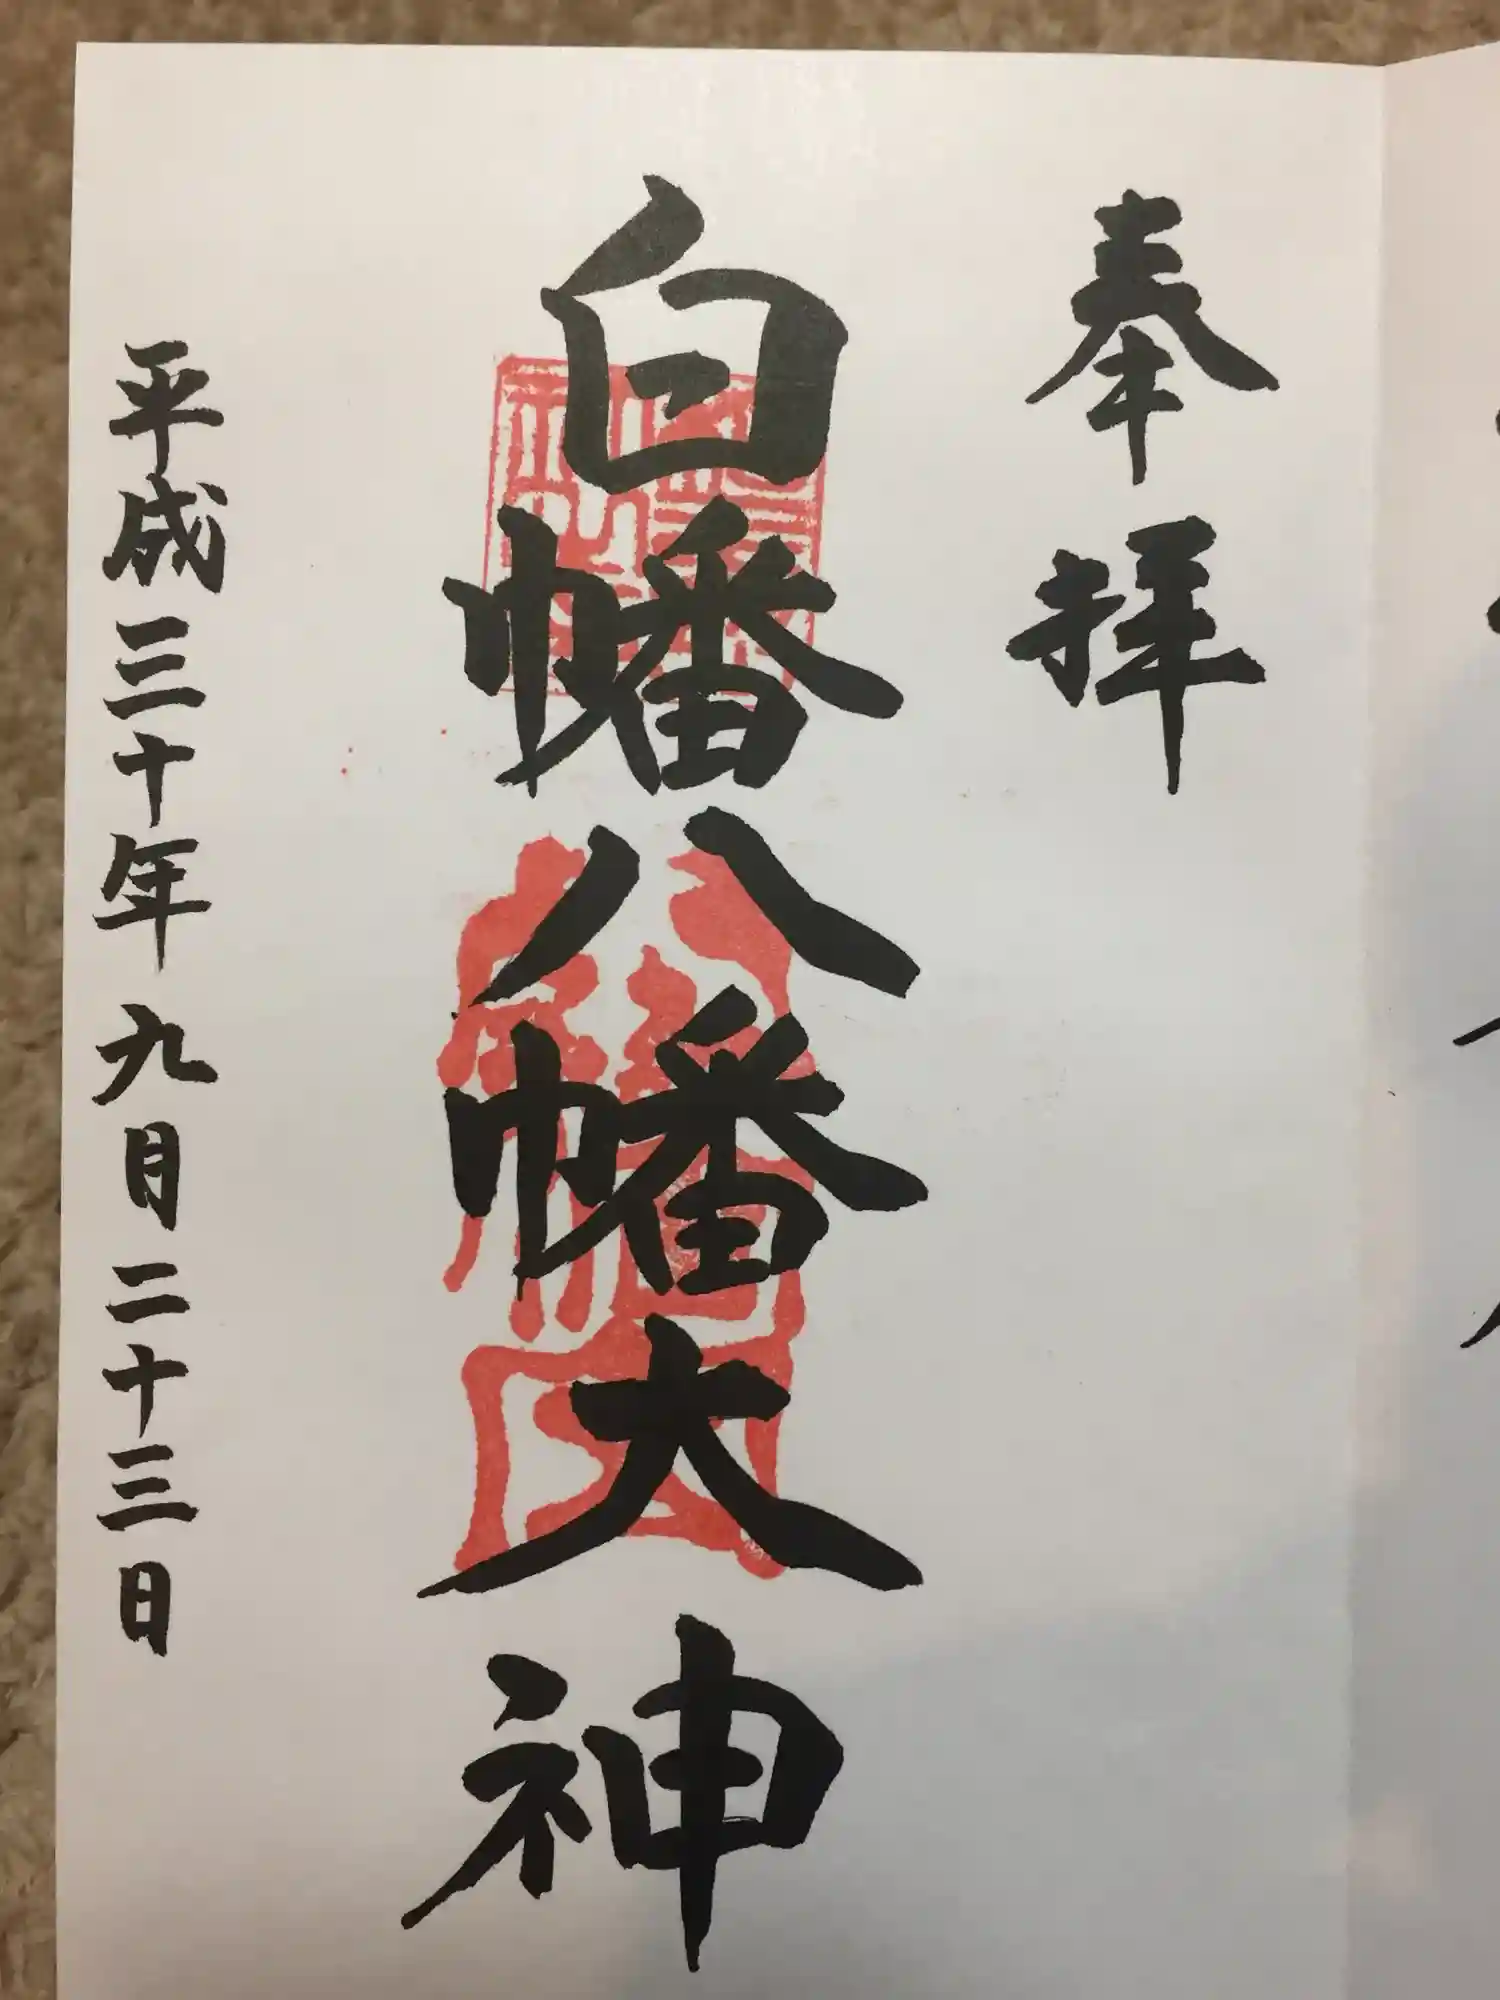 奉拝
白幡八幡大神
平成三十年九月二十三日